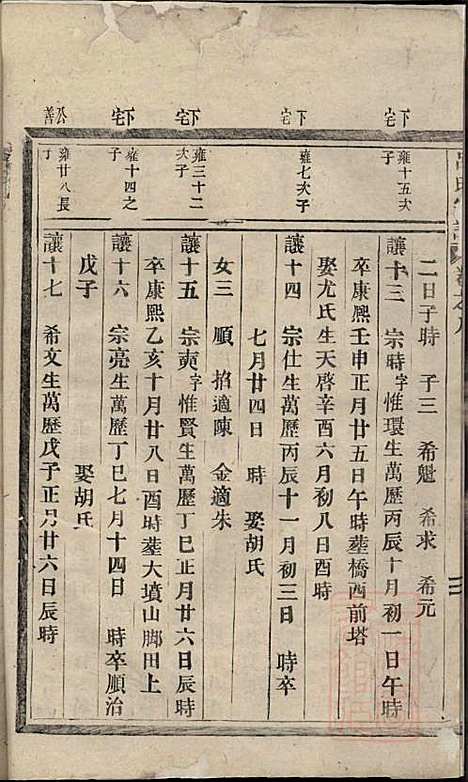 二日子時　子三　希魁　希求　希元
下宅
雍十五次子
讓十三　宗時字惟環生萬歷丙辰十月初一日午時
卒康熙壬申正月廿五日午時塟橋西前塔
娶尤氏生天啓辛酉六月初八日酉時
下宅
雍七次子
讓十四　宗仕生萬歷丙辰十一月初三日　時卒
七月廿四日　時　娶胡氏
女三　順　招適陳　金適朱
下宅
雍三十二次子
讓十五　宗奭字惟賢生萬歷丁巳正月廿六日辰時
卒康熙乙亥十月廿八日酉時塟大墳山脚田上
下宅
雍十四之子
讓十六　宗亮生萬歷丁巳七月十四日　時卒順治
戊子　娶胡氏
公善
雍廿八長丁
讓十七　希文生萬歷戊子正月廿六日辰時